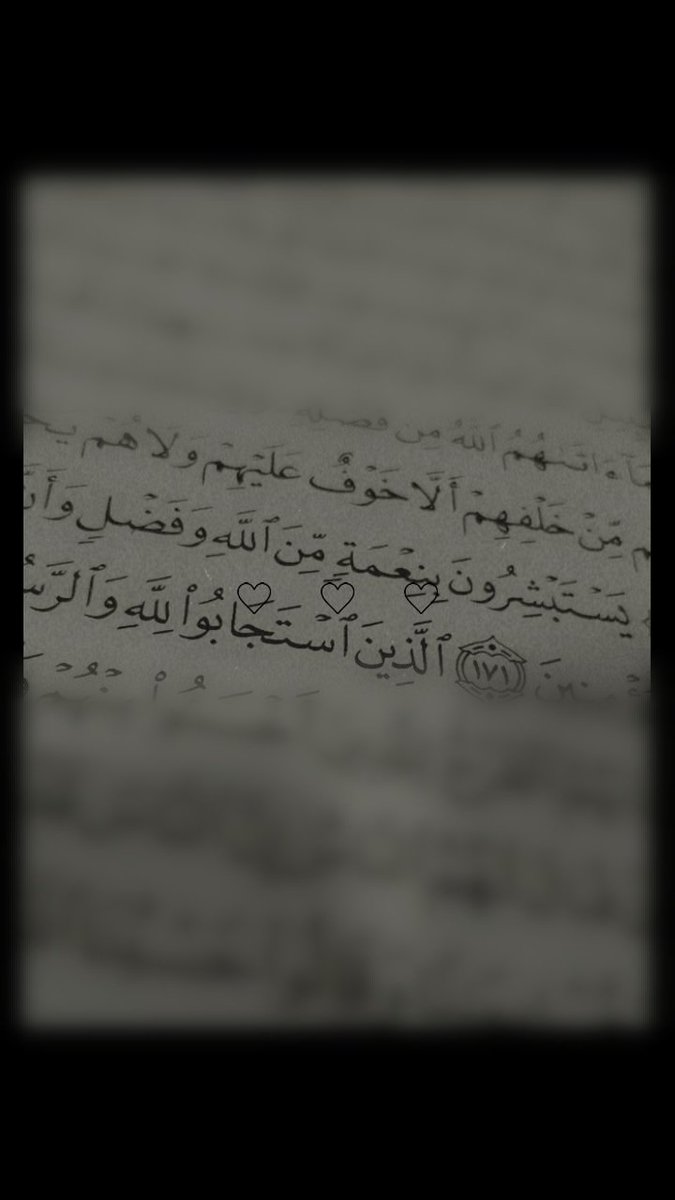 ءَاتَىٰهُمُ ٱللَّهُ مِن فَضْلِهِ
مِّنْ خَلْفِهِمْ أَلَّا خَوْفٌ عَلَيْهِمْ وَلَا هُمْ يَحْ
يَسْتَبْشِرُونَ بِنِعْمَةٍ مِّنَ ٱللَّهِ وَفَضْلٍ وَأَنَّ
١٧١ ٱلَّذِينَ ٱسْتَجَابُوا۟ لِلَّهِ وَٱلرَّسُ